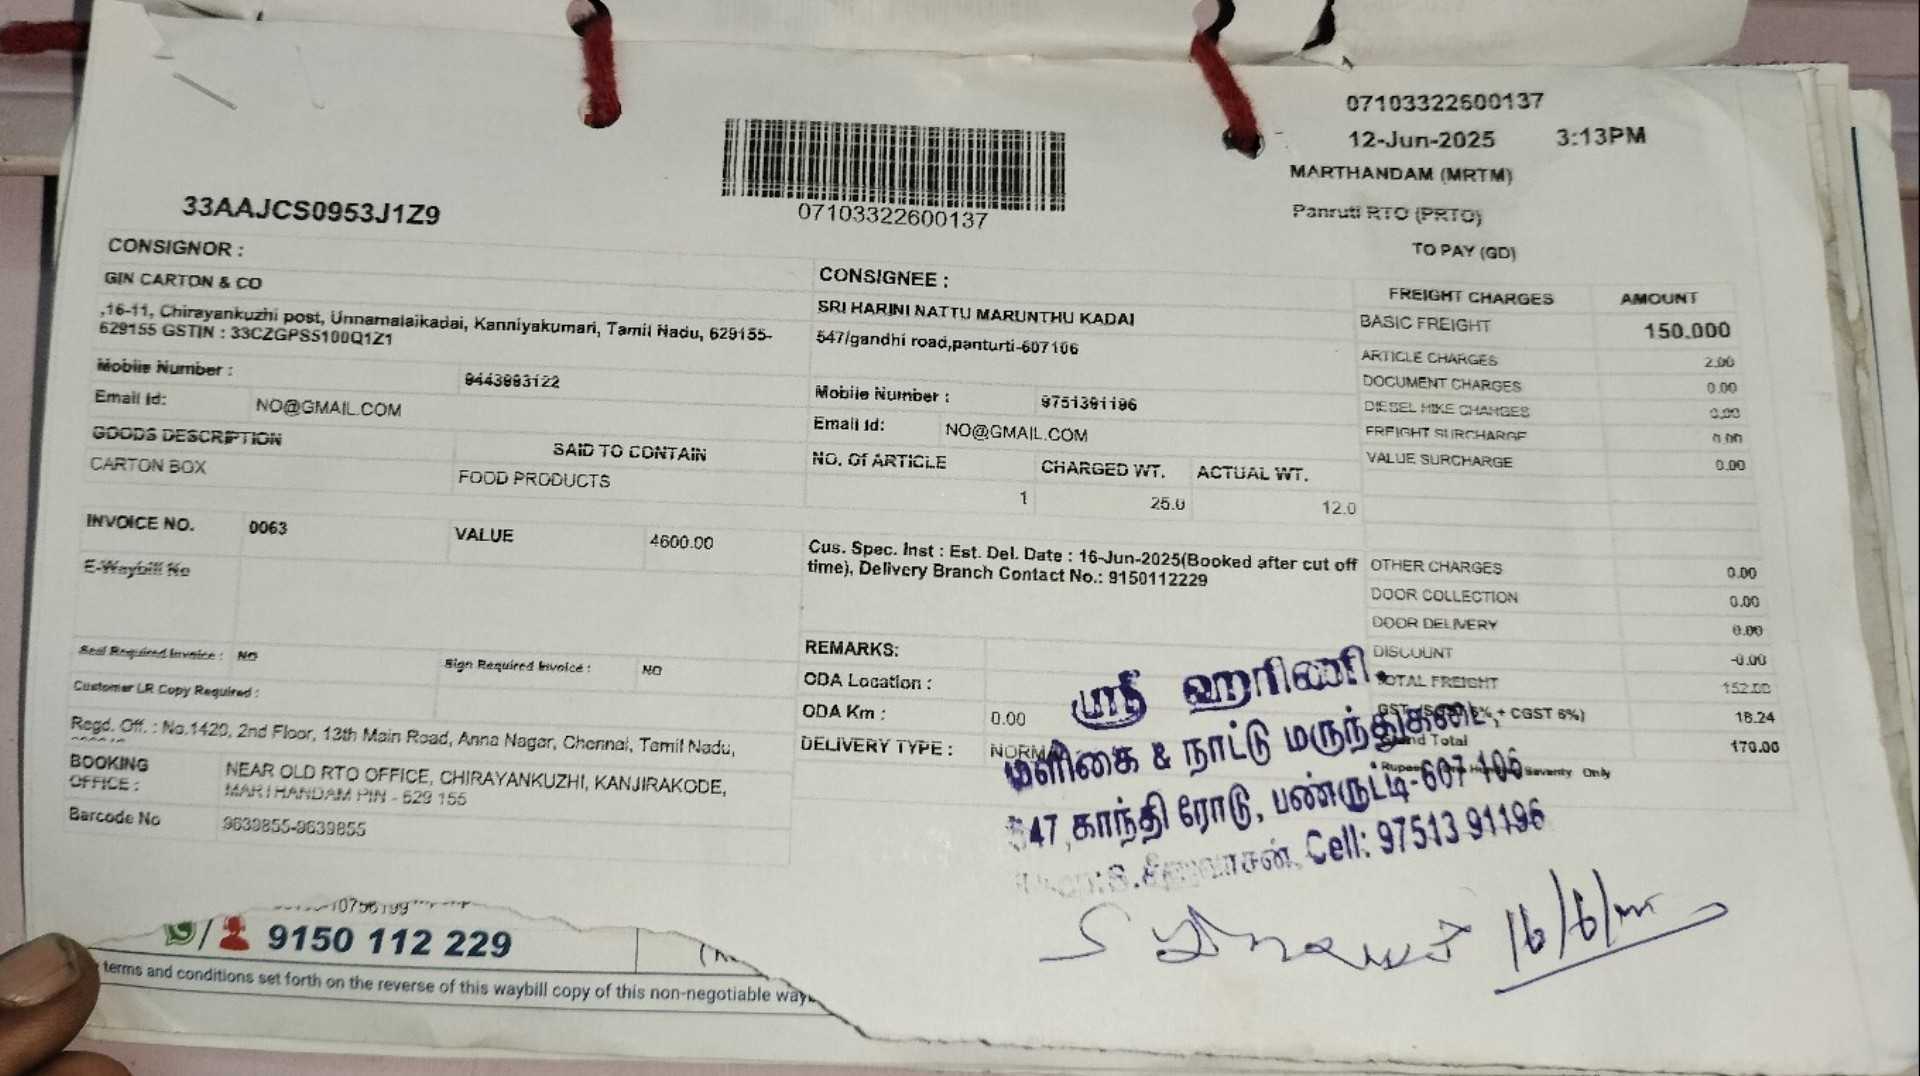 07103322600137
12-Jun-2025 3:13PM
MARTHANDAM (MRTM)
Panruti RTO (PRTO)
TO PAY (GD)
07103322600137
33AAJCS0953J1Z9
CONSIGNOR :
GIN CARTON & CO
,16-11, Chirayankuzhi post, Unnamalaikadai, Kanniyakumari, Tamil Nadu, 629155-
629155 GSTIN : 33CZGPS5100Q1Z1
Mobile Number : 9443993122
Email Id: NO@GMAIL.COM
GOODS DESCRIPTION SAID TO CONTAIN
CARTON BOX FOOD PRODUCTS
INVOICE NO. 0063 VALUE 4600.00
E-Waybill No
Seal Required Invoice : NO Sign Required Invoice : NO
Customer LR Copy Required :
Regd. Off. : No.1420, 2nd Floor, 13th Main Road, Anna Nagar, Chennai, Tamil Nadu,
BOOKING OFFICE : NEAR OLD RTO OFFICE, CHIRAYANKUZHI, KANJIRAKODE,
MARTHANDAM PIN - 629 155
Barcode No 9639855-9639855
CONSIGNEE :
SRI HARINI NATTU MARUNTHU KADAI
547/gandhi road,panturti-607106
Mobile Number : 9751391196
Email Id: NO@GMAIL.COM
NO. Of ARTICLE CHARGED WT. ACTUAL WT.
1 25.0 12.0
Cus. Spec. Inst : Est. Del. Date : 16-Jun-2025(Booked after cut off
time), Delivery Branch Contact No.: 9150112229
REMARKS:
ODA Location :
ODA Km : 0.00
DELIVERY TYPE :
FREIGHT CHARGES AMOUNT
BASIC FREIGHT 150.000
ARTICLE CHARGES 2.00
DOCUMENT CHARGES 0.00
DIESEL HIKE CHARGES 0.00
FREIGHT SURCHARGE 0.00
VALUE SURCHARGE 0.00
OTHER CHARGES 0.00
DOOR COLLECTION 0.00
DOOR DELIVERY 0.00
DISCOUNT -0.00
TOTAL FREIGHT 152.00
GST + CGST 6%) 18.24
Total 170.00
Seventy Only
ஸ்ரீ ஹரிணி
மளிகை & நாட்டு மருந்துகடை,
547, காந்தி ரோடு, பண்ருட்டி-607 106
Cell: 97513 91196
16/6/
9150 112 229
terms and conditions set forth on the reverse of this waybill copy of this non-negotiable